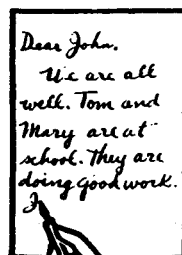 Dear John.
We are all
well. Tom and
Mary are at
school. They are
doing good work.